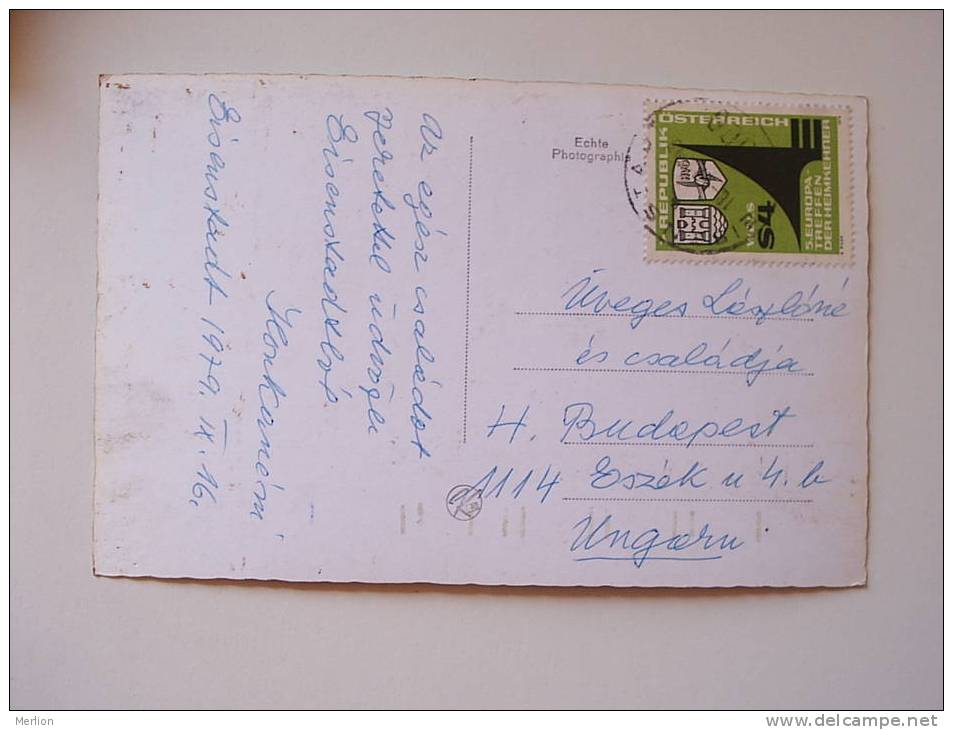 Az egész családot
szeretettel üdvözli
Eisenstadtból
Ilonkanéni
Eisenstadt 1979. IX. 16.
Echte
Photographie
REPUBLIK ÖSTERREICH
S4
5. EUROPA-
TREFFEN
DER HEIMKEHRER
Üveges Lászlóné
és családja
H. Budapest
1114 Eszék u 4. b
Ungarn
Merlion
www.delcampe.net